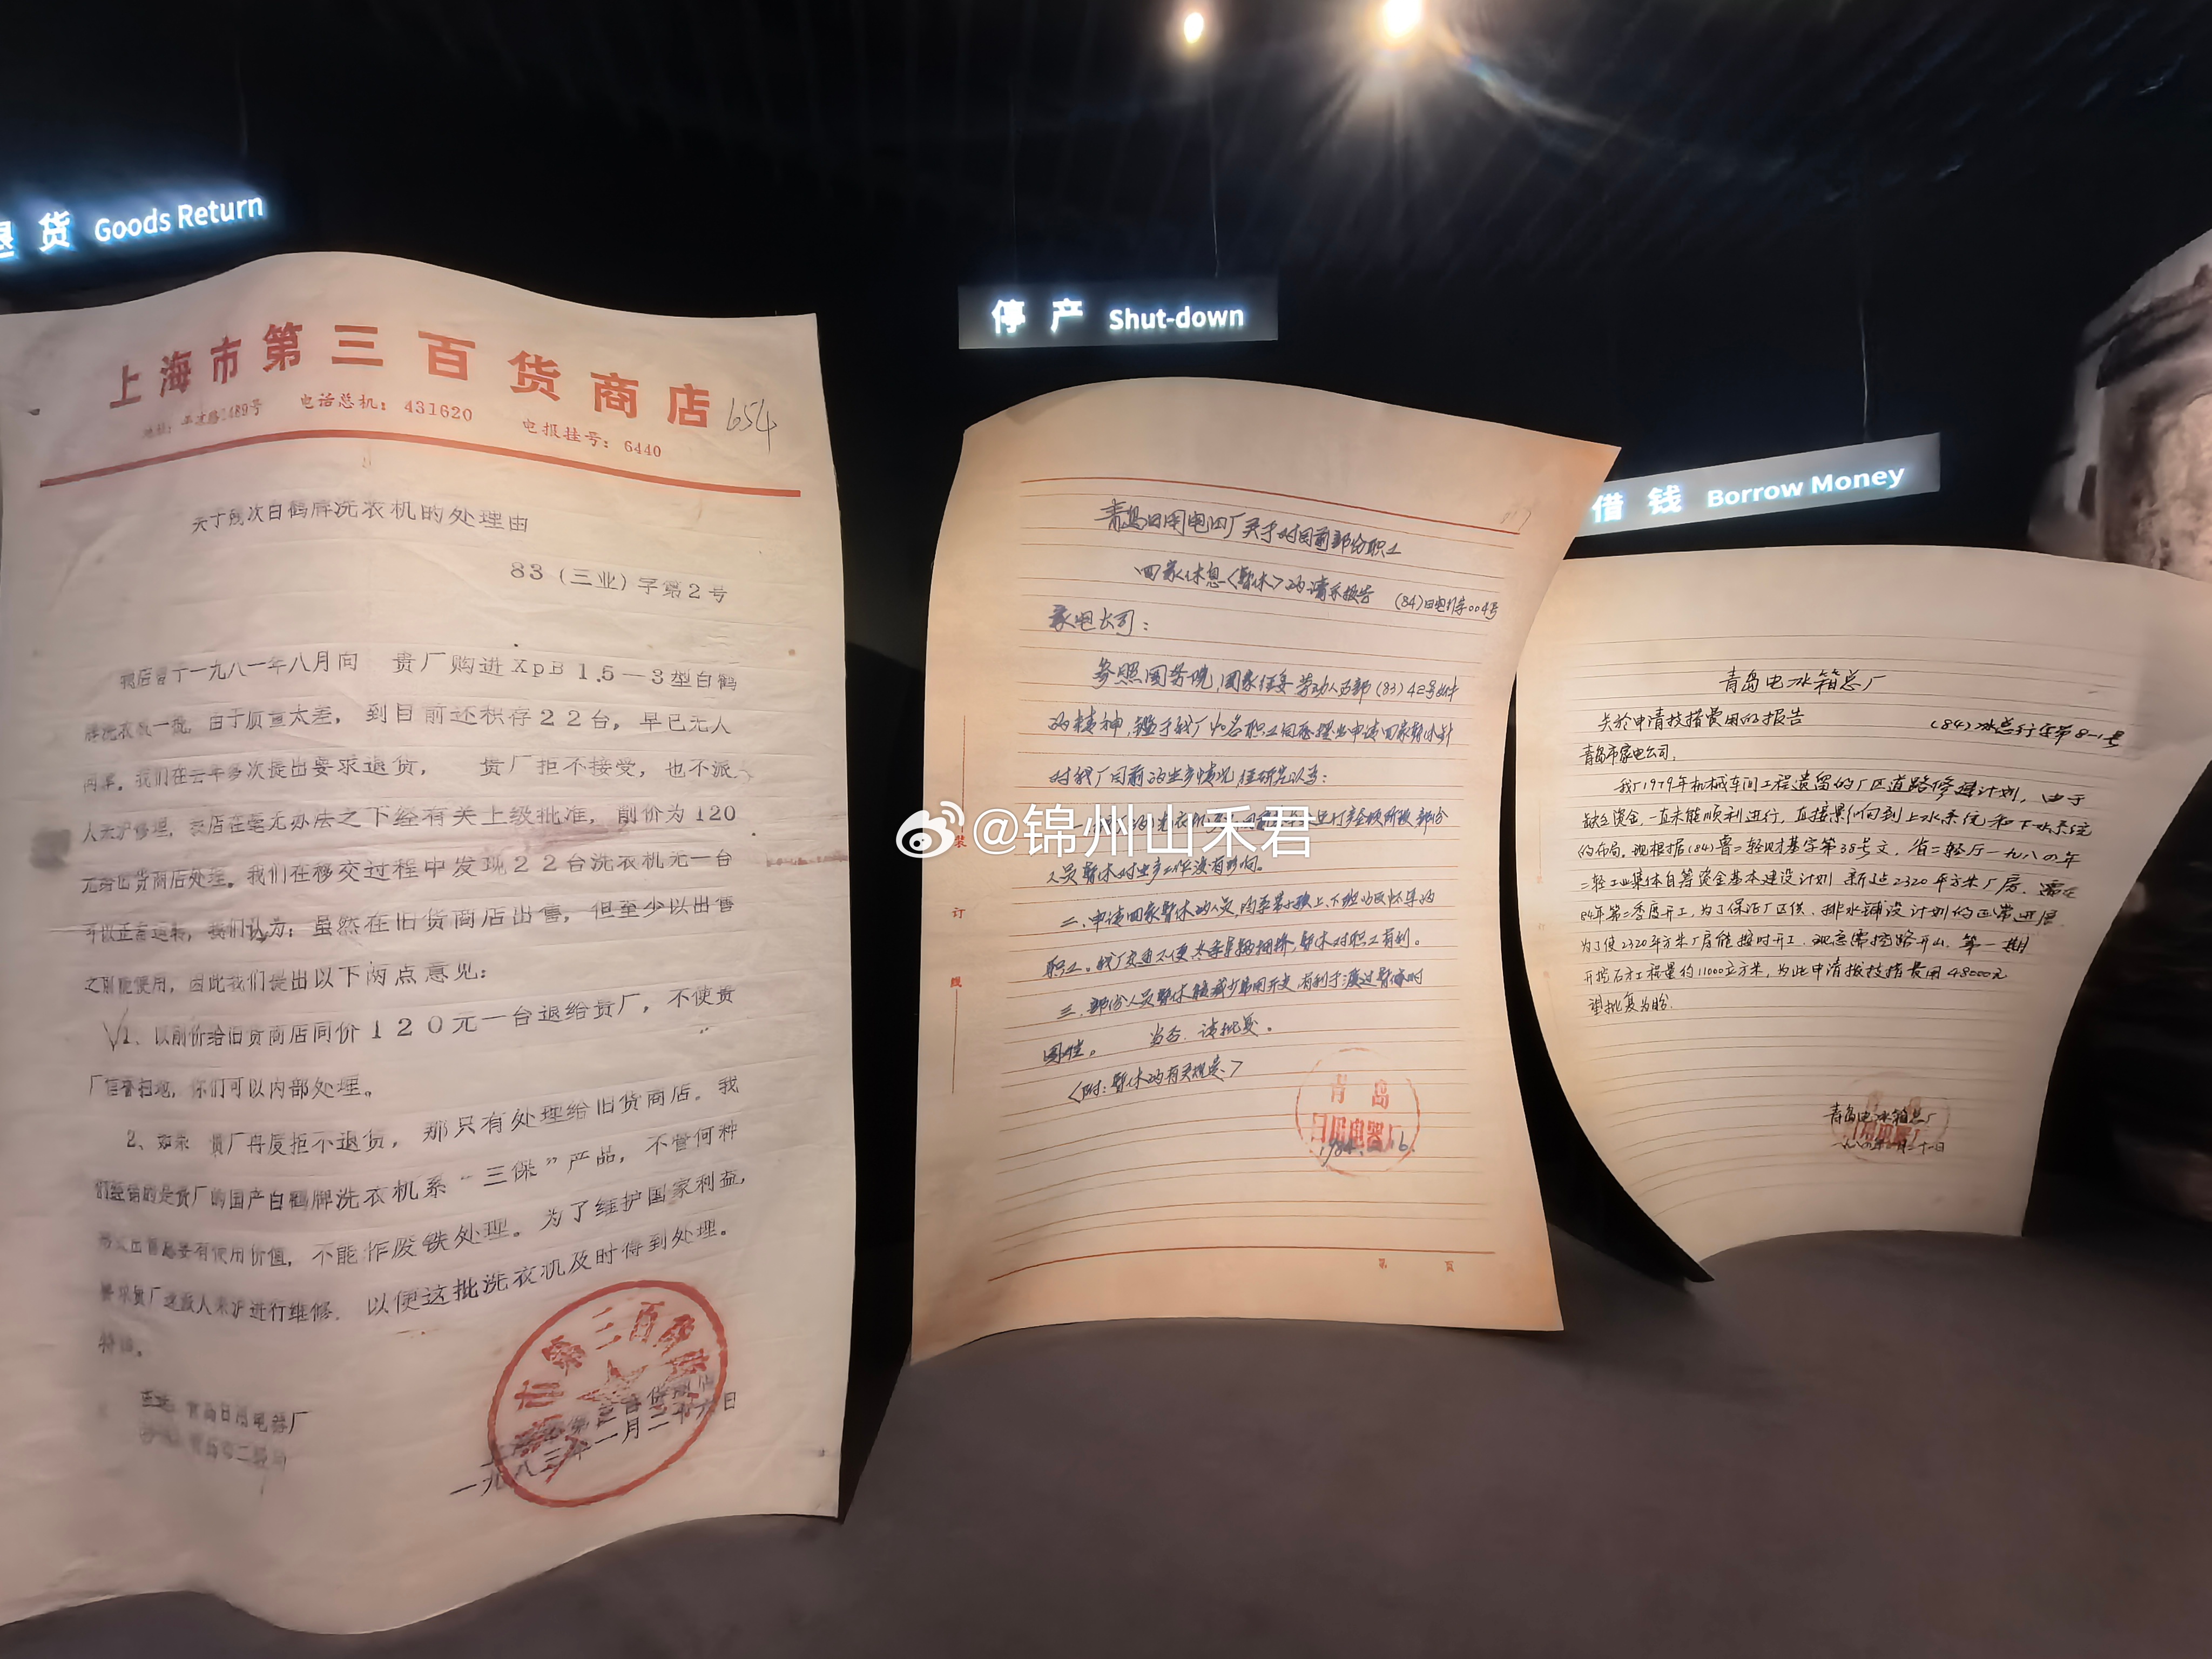 退 货 Goods Return
上海市第三百货商店
654
电话总机：431620
电报挂号：6440
关于残次白鹤牌洗衣机的处理由
83（三业）字第2号
我店曾于一九八一年八月向 贵厂购进XpB1.5—3型白鹤
牌洗衣机一批，由于质量太差，到目前还积存22台，早已无人
问津。我们在去年多次提出要求退货， 贵厂拒不接受，也不派
人来沪修理，我店在毫无办法之下经有关上级批准，削价为120
元给旧货商店处理。我们在移交过程中发现22台洗衣机无一台
可以正常运转，我们认为：虽然在旧货商店出售，但至少以出售
之前能使用，因此我们提出以下两点意见：
1、以削价给旧货商店同价120元一台退给贵厂，不使贵
厂信誉扫地，你们可以内部处理。
2、如果 贵厂再度拒不退货，那只有处理给旧货商店。我
们经销的是贵厂的国产白鹤牌洗衣机系“三保”产品，不管何种
形式出售总要有使用价值，不能作废铁处理。为了维护国家利益，
要求贵厂速派人来沪进行维修，以便这批洗衣机及时得到处理。
青岛日用电器厂
一九八三年一月二十六日
停 产 Shut-down
青岛日用电四厂关于对目前部份职工
回家休息〈暂休〉的请示报告 (84)日电行字004号
家电公司：
参照国务院，国家经委劳动人事部(83)42号文件
的精神，鉴于我厂 名职工同志提出申请回家暂休针
对我厂目前的生产情况，经研究认为：
人员暂休对生产工作没有影响。
二、申请回家暂休的人员，
职工。我厂交通不便，冬季 拥挤，暂休对职工有利。
三、部份人员暂休能减少费用开支，有利于渡过暂时的
困难。 当否，请批复。
〈附：暂休的有关规定〉
青岛
日用电器厂
1984.
装
订
线
第 页
借 钱 Borrow Money
青岛电冰箱总厂
关於申请技措费用的报告 (84)冰总行字第8-1号
青岛市家电公司：
我厂1979年机械车间工程遗留的厂区道路修建计划，由于
缺乏资金，一直未能顺利进行，直接影响到上水系统和下水系统
的布局，现根据(84)鲁二轻财基字第38号文，省二轻厅一九八四年
二轻工业集体自筹资金基本建设计划 新建2320平方米厂房，需在
84年第二季度开工，为了保证厂区供、排水铺设计划的正常进展，
为了使2320平方米厂房能按时开工，现急需挖路开山，第一期
开挖石方工程量约11000立方米，为此申请拨技措费用48000元
望批复为盼.
青岛电冰箱总厂
@锦州山禾君